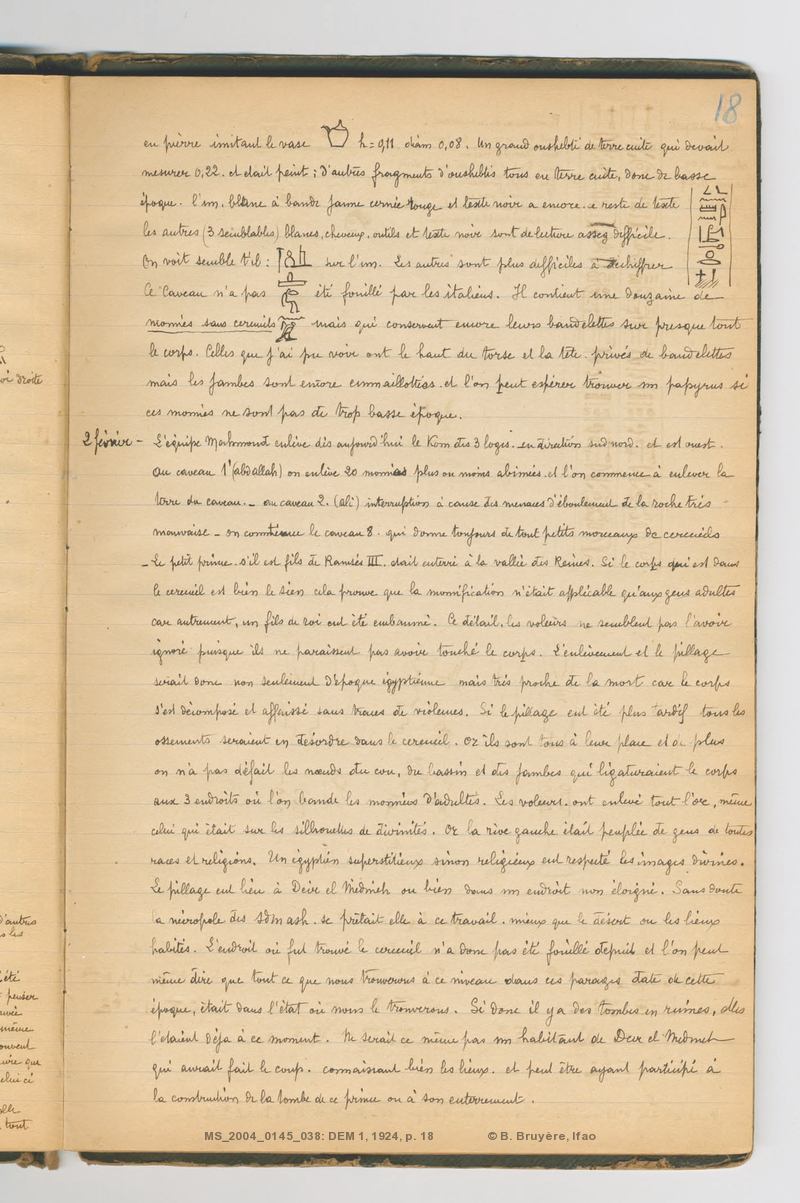 18
en pierre imitant le vase h = 0,11 diam 0,08. Un grand oushebti de terre cuite qui devait
mesurer 0,22. et était peint ; d'autres fragments d'oushebtis tous en terre cuite, donc de basse
époque. l'un, blanc à bande jaune cernée rouge et texte noir a encore ce reste de texte
les autres (3 semblables) blancs, cheveux, outils et texte noir sont de lecture assez difficile.
On voit semble t'il : sur l'un. Les autres sont plus difficiles à déchiffrer
Ce caveau n'a pas été fouillé par les italiens. Il contient une douzaine de
momies sans cercueils mais qui conservent encore leurs bandelettes sur presque tout
le corps. Celles que j'ai pu voir ont le haut du torse et la tête privés de bandelettes
mais les jambes sont encore emmaillottées et l'on peut espérer trouver un papyrus si
ces momies ne sont pas de trop basse époque.
2 février - L'équipe Mahmoud enlève dès aujourd'hui le Kom des 3 loges. en direction sud nord. et est ouest.
Au caveau 1 (abdallah) on enlève 20 momies plus ou moins abimées. et l'on commence à enlever la
terre du caveau. - au caveau 2. (ali) interruption à cause des menaces d'éboulement de la roche très
mauvaise - on continue le caveau 8. qui donne toujours de tout petits morceaux de cercueils
- Le petit prince. s'il est fils de Ramsès III. était enterré à la vallée des Reines. Si le corps qui est dans
le cercueil est bien le sien cela prouve que la momification n'était applicable qu'aux gens adultes
car autrement, un fils de roi eut été embaumé. Ce détail, les voleurs ne semblent pas l'avoir
ignoré puisque ils ne paraissent pas avoir touché le corps. L'enlèvement et le pillage
serait donc non seulement d'époque égyptienne mais très proche de la mort car le corps
s'est décomposé et affaissé sans traces de violences. Si le pillage eut été plus tardif tous les
ossements seraient en désordre dans le cercueil. Or ils sont tous à leur place et de plus
on n'a pas défait les nœuds du cou, du bassin et des jambes qui ligaturaient le corps
aux 3 endroits où l'on bande les momies d'adultes. Les voleurs ont enlevé tout l'or, même
celui qui était sur les silhouettes de divinités. Or la rive gauche était peuplée de gens de toutes
races et religions. Un égyptien superstitieux sinon religieux eut respecté les images divines.
Le pillage eut lieu à Deir el Medineh ou bien dans un endroit non éloigné. Sans doute
la nécropole des sdm ash. se prêtait elle à ce travail. mieux que le désert ou les lieux
habités. L'endroit où fut trouvé le cercueil n'a donc pas été fouillé depuis et l'on peut
même dire que tout ce que nous trouverons à ce niveau dans ces parages date de cette
époque, était dans l'état où nous le trouverons. Si donc il y a des tombes en ruines, elles
l'étaient déja à ce moment. Ne serait ce même pas un habitant de Deir el Medineh
qui aurait fait le coup. connaissant bien les lieux. et peut être ayant participé à
la construction de la tombe de ce prince ou à son enterrement.
oi droite
d'autres
s les
été
penser
même
ouvent
elui ci
elle
tout
MS_2004_0145_038: DEM 1, 1924, p. 18 © B. Bruyère, Ifao